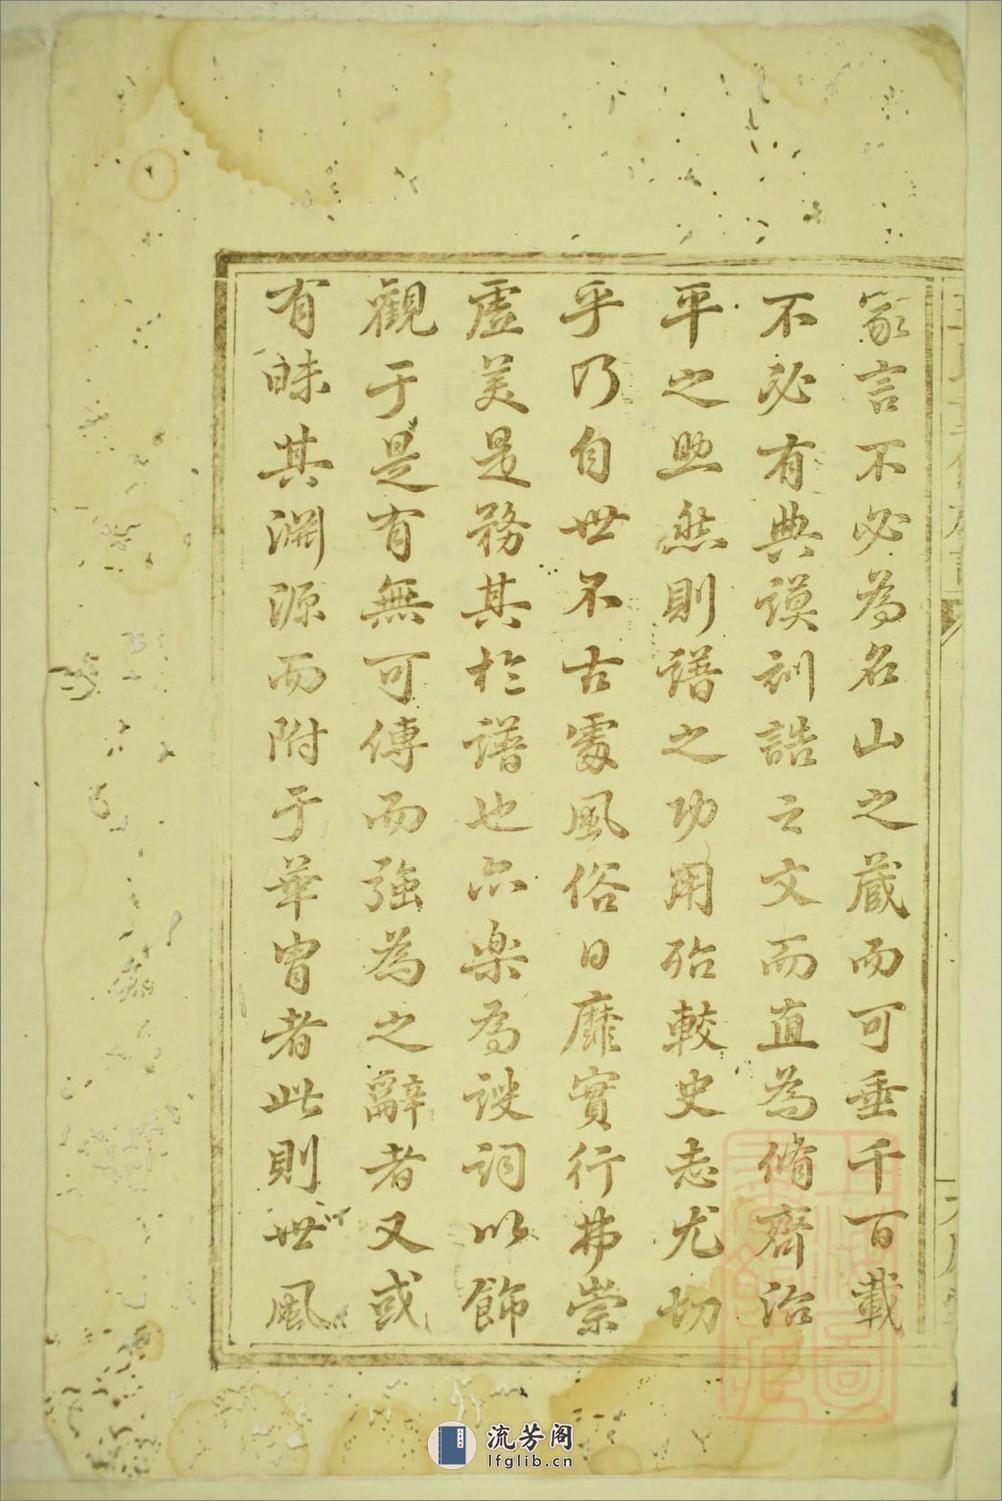 家言不必為名山之蔵而可垂千百載
不必有典謨訓誥之文而直為脩齊治
平之助然則譜之功用殆較史志尤切
乎乃自世不古處風俗日靡實行弗崇
虛美是務其於譜也亦樂為諛詞以飾
觀于是有無可傳而強為之辭者又或
有昧其淵源而附于華胄者此則世風
流芳阁
lfglib.cn